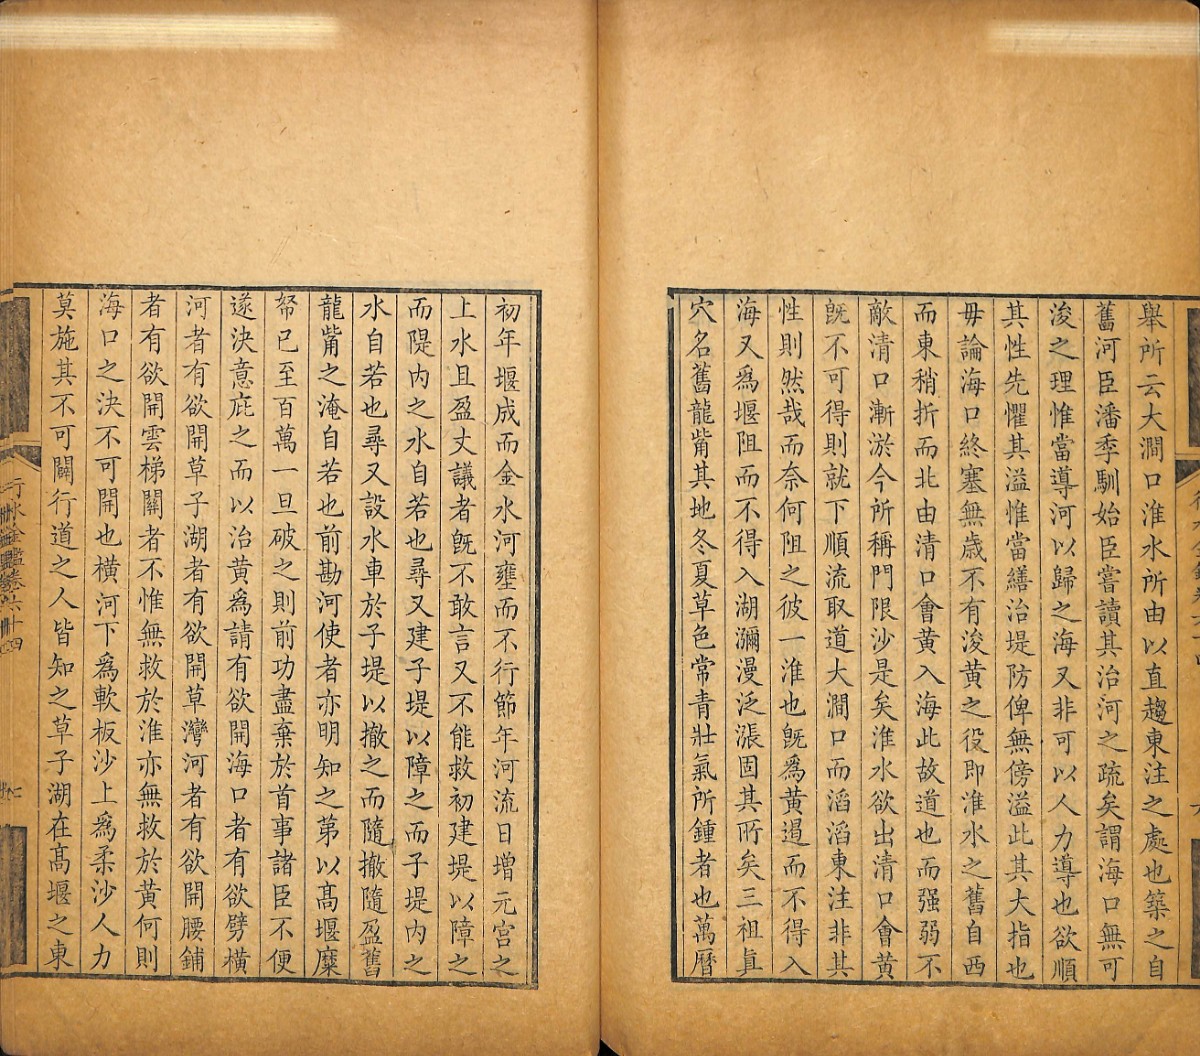 舉所云大澗口淮水所由以直趨東注之處也築之自
舊河臣潘季馴始臣嘗讀其治河之疏矣謂海口無可
浚之理惟當導河以歸之海又非可以人力導也欲順
其性先懼其溢惟當繕治堤防俾無傍溢此其大指也
毋論海口終塞無歲不有浚黃之役即淮水之舊自西
而東稍折而北由清口會黃入海此故道也而强弱不
敵清口漸淤今所稱門限沙是矣淮水欲出清口會黃
旣不可得則就下順流取道大澗口而滔滔東注非其
性則然哉而奈何阻之彼一淮也旣爲黃遏而不得入
海又爲堰阻而不得入湖瀰漫泛漲固其所矣三祖眞
穴名舊龍觜其地冬夏草色常青壯氣所鍾者也萬曆
初年堰成而金水河壅而不行節年河流日增元宮之
上水且盈丈議者旣不敢言又不能救初建堤以障之
而隄内之水自若也尋又建子堤以障之而子堤内之
水自若也尋又設水車於子堤以撤之而隨撤隨盈舊
龍觜之淹自若也前勘河使者亦明知之第以高堰糜
帑已至百萬一旦破之則前功盡棄於首事諸臣不便
遂決意庇之而以治黃爲請有欲開海口者有欲劈橫
河者有欲開草子湖者有欲開草灣河者有欲開腰鋪
者有欲開雲梯關者不惟無救於淮亦無救於黃何則
海口之決不可開也橫河下爲軟板沙上爲柔沙人力
莫施其不可闢行道之人皆知之草子湖在髙堰之東
行水金鑑卷六十四
七